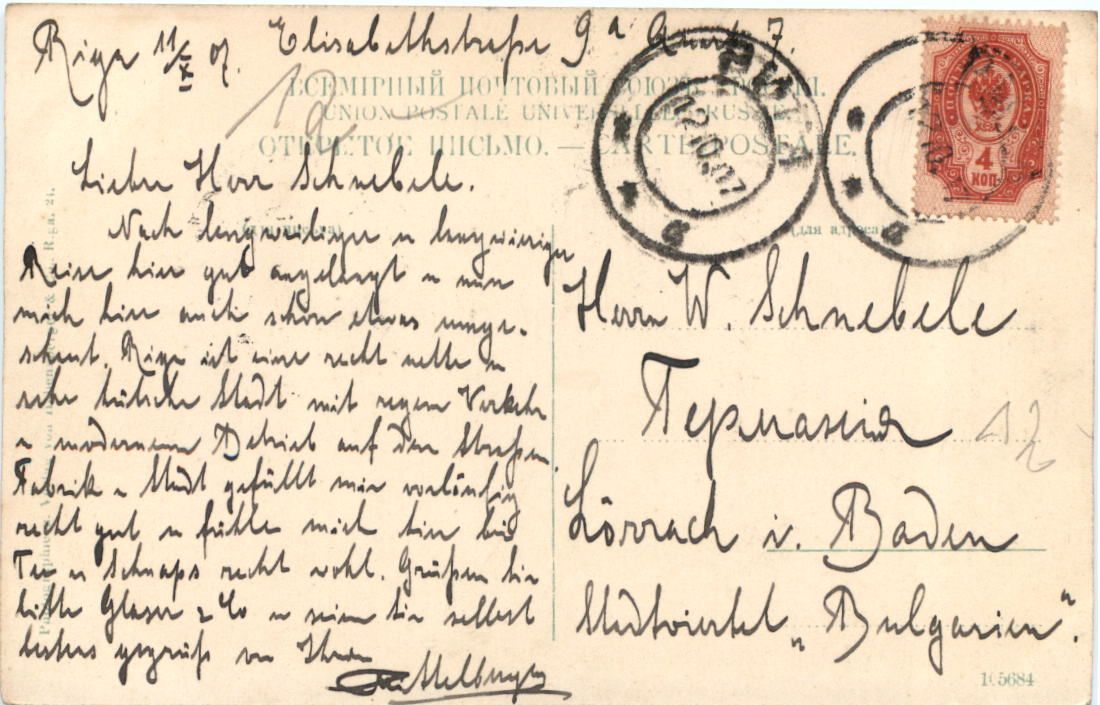 Riga 11/IX 07. Elisabethstraße 9a Quart 7.
ВСЕМІРНЫЙ ПОЧТОВЫЙ СОЮЗЪ. РОССІЯ.
UNION POSTALE UNIVERSELLE. RUSSIE.
ОТКРЫТОЕ ПИСЬМО. — CARTE POSTALE.
РИГА
12.10.07
4
КОП
(для адреса)
Lieber Herr Schnebele.
Nach langweiliger u langwieriger
Reise hier gut angelangt u nun
mich hier auch schon etwas umge-
schaut. Riga ist eine recht nette u
sehr hübsche Stadt mit regem Verkehr
u modernem Betrieb auf den Straßen.
Fabrik u Stadt gefällt mir vorläufig
recht gut u fühle mich hier bei
Tee u Schnaps recht wohl. Grüßen Sie
bitte Glaser & Co u seien Sie selbst
bestens gegrüßt von Ihrem
Herrn W. Schnebele
Германія
12
Lörrach i. Baden
Stadtviertel „Bulgarien“.
105684